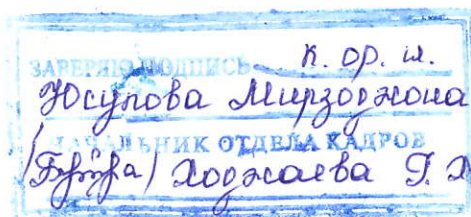 ЗАВЕРЯЮ ПОДПИСЬ к. ф. н.
Юсупова Мирзоджона
НАЧАЛЬНИК ОТДЕЛА КАДРОВ
Ходжаева Г. Х